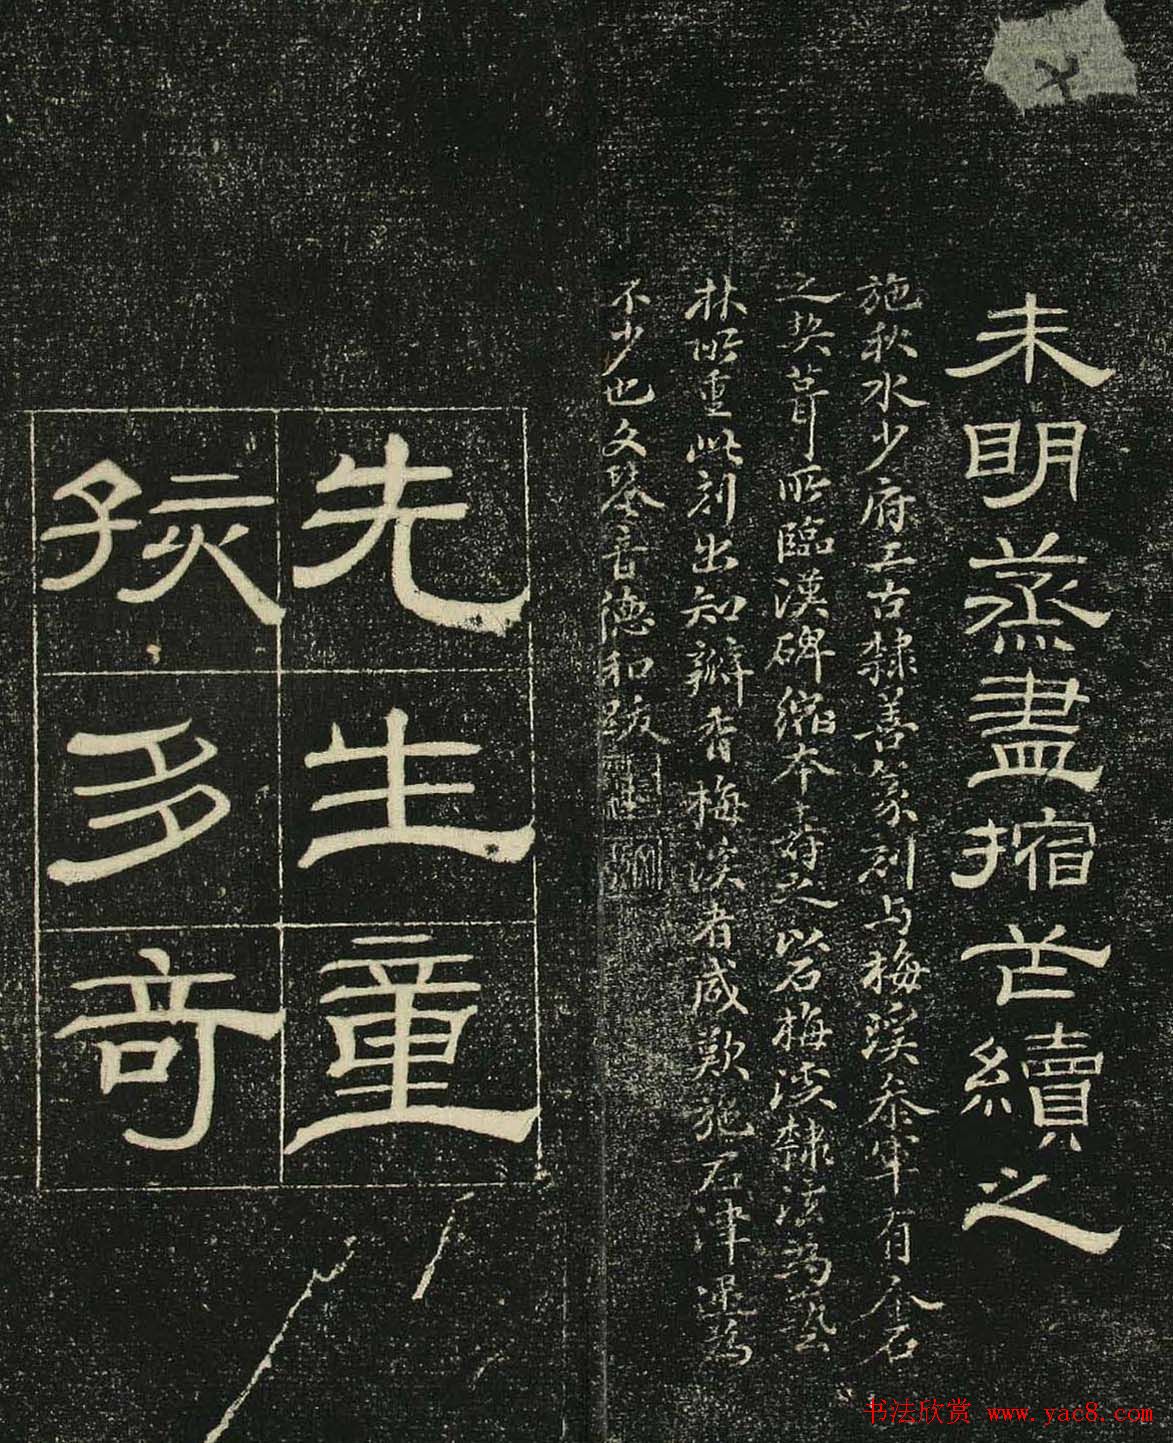 未明蒸盡摍芒續之
施秋水少府工古隸善篆刻与梅溪參軍有金石
之契茸所臨漢碑縮本壽之以石梅溪隸法為藝
林所重此刻出知瓣香梅溪者咸歎施君津逮為
不少也文琴音德和跋
先生童
孩多奇
书法欣赏 www.yac8.com